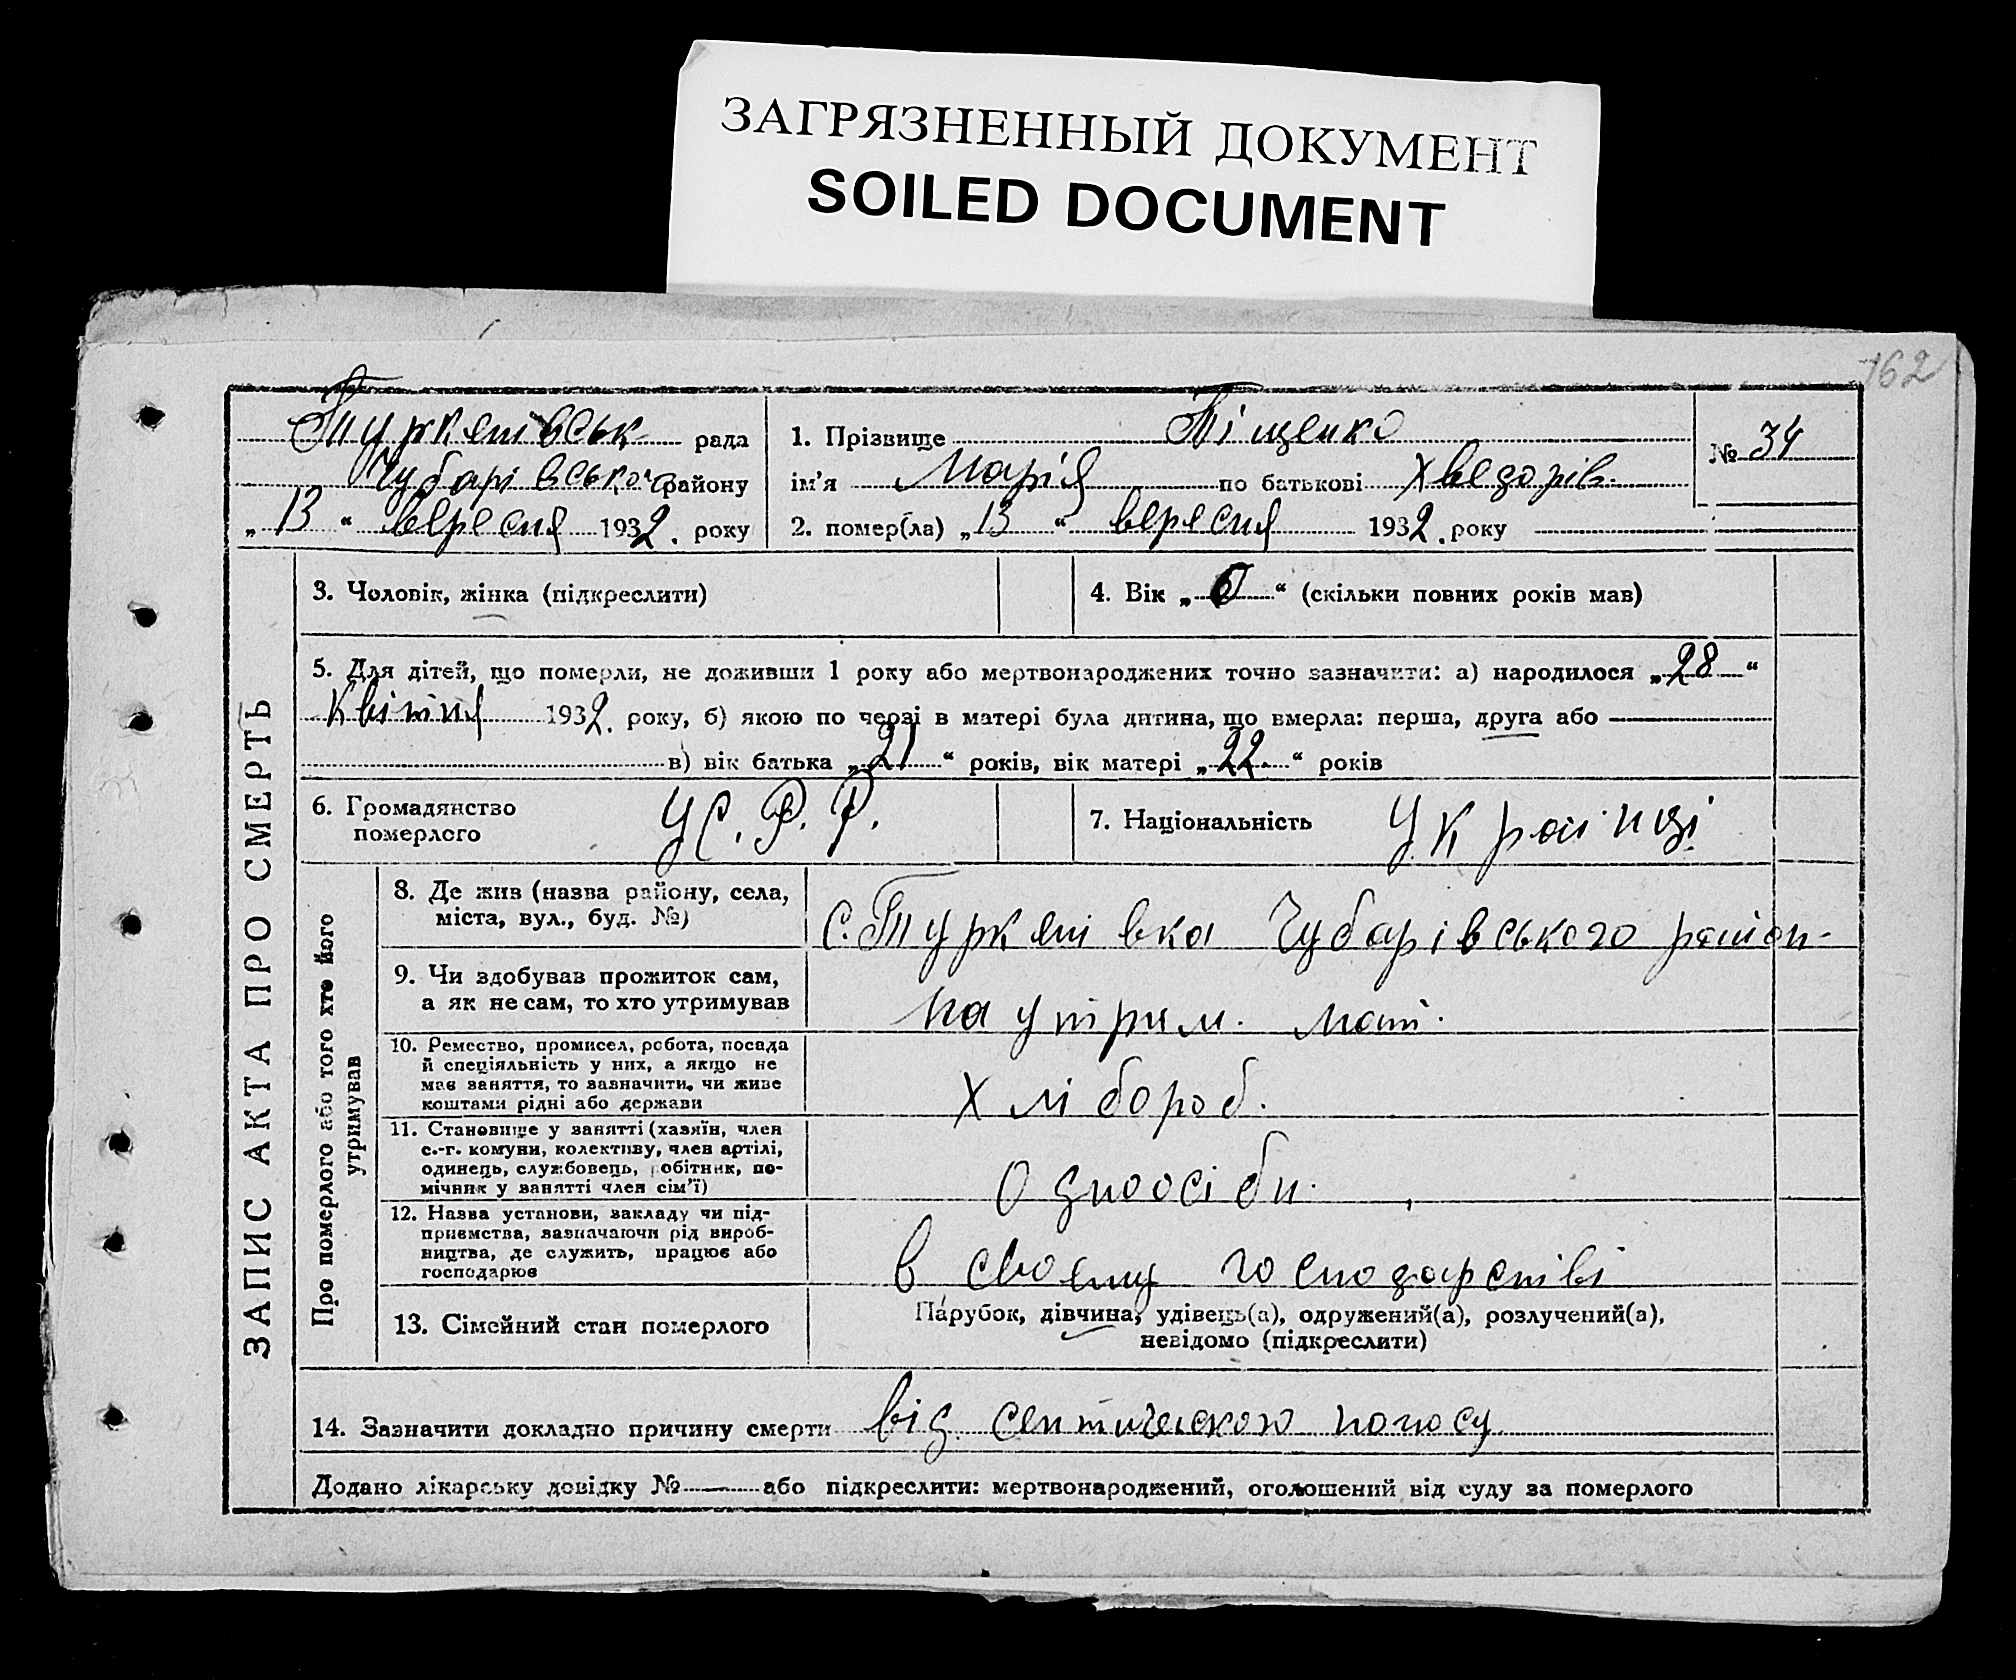 ЗАГРЯЗНЕННЫЙ ДОКУМЕНТ
SOILED DOCUMENT
162
Туркенівськ рада
Чубарівського району
„13“ вересня 1932. року
1. Прізвище Тіщенко
ім’я Марія по батькові Хведорів.
№ 34
2. помер(ла) „13“ вересня 1932. року
ЗАПИС АКТА ПРО СМЕРТЬ
3. Чоловік, жінка (підкреслити)
4. Вік „0“ (скільки повних років мав)
5. Для дітей, що померли, не доживши 1 року або мертвонароджених точно зазначити: а) народилося „28“
Квітня 1932. року, б) якою по черзі в матері була дитина, що вмерла: перша, друга або
в) вік батька „21“ років, вік матері „22.“ років
6. Громадянство
померлого
УС.Р.Р.
7. Національність Українці
Про померлого або того хто його
утримував
8. Де жив (назва району, села,
міста, вул., буд. №)
с. Туркенівка Чубарівського район-
9. Чи здобував прожиток сам,
а як не сам, то хто утримував
На утрим. мат.
10. Ремество, промисел, робота, посада
й спеціяльність у них, а якщо не
має заняття, то зазначити, чи живе
коштами рідні або держави
Хлібороб.
11. Становище у занятті (хазяїн, член
с.-г. комуни, колективу, член артілі,
одинець, службовець, робітник, по-
мічник у занятті член сім’ї)
Одноосібн.
12. Назва установи, закладу чи під-
приємства, зазначаючи рід вироб-
ництва, де служить, працює або
господарює
в своему господарстві
13. Сімейний стан померлого
Парубок, дівчина, удівець(а), одружений(а), розлучений(а),
невідомо (підкреслити)
14. Зазначити докладно причину смерти від септическою поносу
Додано лікарську довідку № — або підкреслити: мертвонароджений, оголошений від суду за померлого